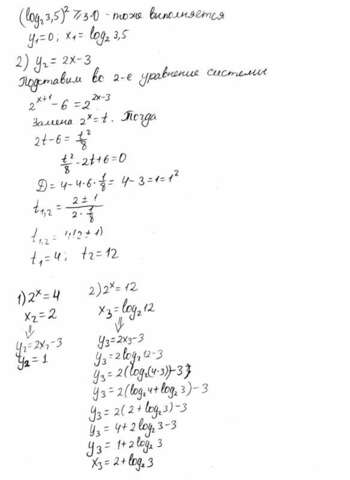 (log₂3,5)² ≥ 3·0 - тоже выполняется
y₁=0; x₁ = log₂3,5
2) y₂ = 2x-3
Подставим во 2-е уравнение системы
2^(x+1) - 6 = 2^(2x-3)
Замена 2^x = t. Тогда
2t-6 = t²/8
t²/8 - 2t+6=0
D = 4-4·6·1/8 = 4-3=1=1²
t₁,₂ = (2±1)/(2·1/8)
t₁,₂ = 4(2±1)
t₁=4; t₂=12
1) 2^x = 4
x₂ = 2
⇓
y₂=2x₂-3
y₂ = 1
2) 2^x = 12
x₃ = log₂12
⇓
y₃=2x₃-3
y₃ = 2log₂12-3
y₃ = 2(log₂(4·3))-3
y₃ = 2(log₂4+log₂3)-3
y₃ = 2(2+log₂3)-3
y₃ = 4+2log₂3-3
y₃ = 1+2log₂3
x₃ = 2+log₂3